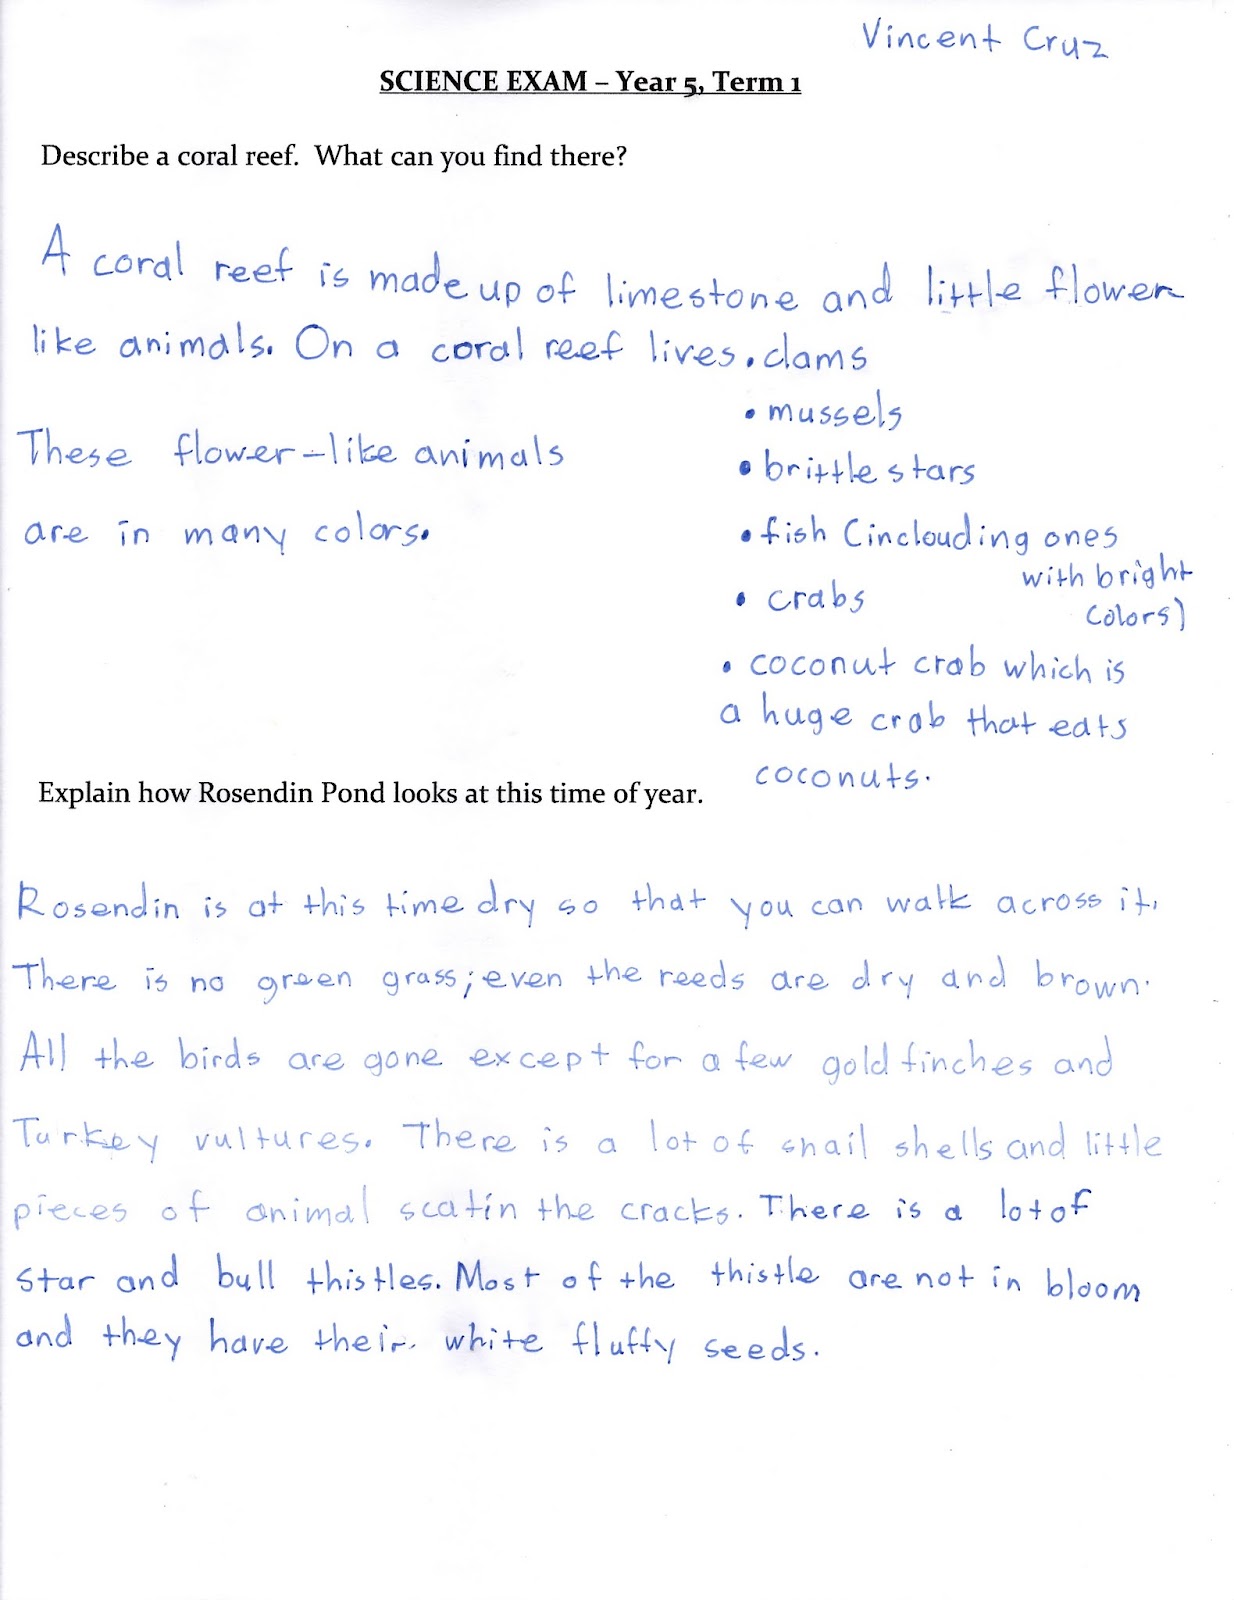 Vincent Cruz
SCIENCE EXAM – Year 5, Term 1
Describe a coral reef.  What can you find there?
A coral reef is made up of limestone and little flower
like animals. On a coral reef lives • clams
• mussels
• brittle stars
• fish (inclouding ones
with bright
colors)
• crabs
• coconut crab which is
a huge crab that eats
coconuts.
These flower-like animals
are in many colors.
Explain how Rosendin Pond looks at this time of year.
Rosendin is at this time dry so that you can walk across it.
There is no green grass; even the reeds are dry and brown.
All the birds are gone except for a few gold finches and
Turkey vultures. There is a lot of snail shells and little
pieces of animal scat in the cracks. There is a lot of
star and bull thistles. Most of the thistle are not in bloom
and they have their white fluffy seeds.